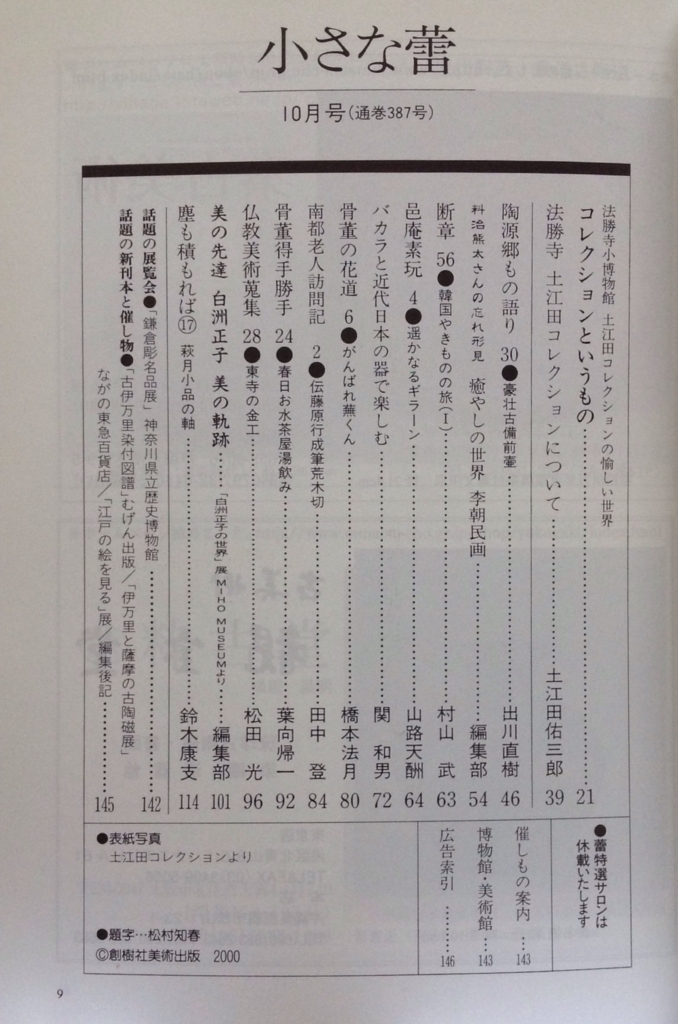 小さな蕾
10月号(通巻387号)
法勝寺小博物館 土江田コレクションの愉しい世界
コレクションというもの…………………………21
法勝寺 土江田コレクションについて…………土江田佑三郎 39
陶源郷もの語り 30●豪壮古備前壷…………出川直樹 46
料治熊太さんの忘れ形見 癒やしの世界 李朝民画…………編集部 54
断章 56●韓国やきものの旅(I)…………村山 武 63
邑庵素玩 4●遥かなるギラーン…………山路天酬 64
バカラと近代日本の器で楽しむ…………関 和男 72
骨董の花道 6●がんばれ蕪くん…………橋本法月 80
南都老人訪問記 2●伝藤原行成筆荒木切…………田中 登 84
骨董得手勝手 24●春日お水茶屋湯飲み…………葉向帰一 92
仏教美術蒐集 28●東寺の金工…………松田 光 96
美の先達 白洲正子 美の軌跡……「白洲正子の世界」展 MIHO MUSEUMより…編集部 101
塵も積もれば⑰ 萩月小品の軸…………鈴木康支 114
話題の展覧会●「鎌倉彫名品展」神奈川県立歴史博物館…………142
話題の新刊本と催し物●「古伊万里染付図譜」むげん出版/「伊万里と薩摩の古陶磁展」
ながの東急百貨店/「江戸の絵を見る」展/編集後記…………145
●蕾特選サロンは
休載いたします
催しもの案内……143
博物館・美術館……143
広告索引…………146
●表紙写真
土江田コレクションより
●題字…松村知春
©創樹社美術出版 2000
9